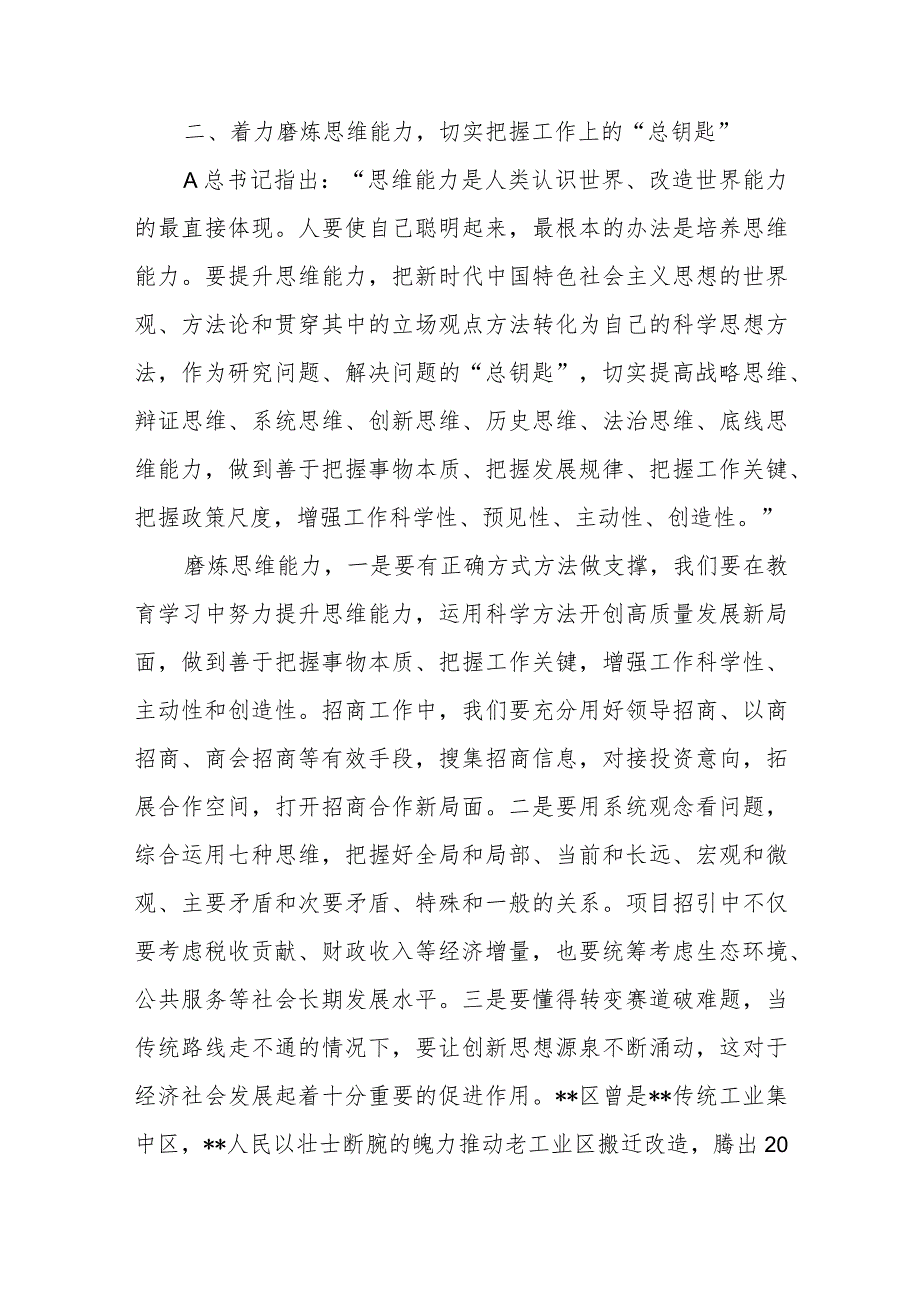 二、着力磨炼思维能力，切实把握工作上的“总钥匙”
A总书记指出：“思维能力是人类认识世界、改造世界能力
的最直接体现。人要使自己聪明起来，最根本的办法是培养思维
能力。要提升思维能力，把新时代中国特色社会主义思想的世界
观、方法论和贯穿其中的立场观点方法转化为自己的科学思想方
法，作为研究问题、解决问题的“总钥匙”，切实提高战略思维、
辩证思维、系统思维、创新思维、历史思维、法治思维、底线思
维能力，做到善于把握事物本质、把握发展规律、把握工作关键、
把握政策尺度，增强工作科学性、预见性、主动性、创造性。”
磨炼思维能力，一是要有正确方式方法做支撑，我们要在教
育学习中努力提升思维能力，运用科学方法开创高质量发展新局
面，做到善于把握事物本质、把握工作关键，增强工作科学性、
主动性和创造性。招商工作中，我们要充分用好领导招商、以商
招商、商会招商等有效手段，搜集招商信息，对接投资意向，拓
展合作空间，打开招商合作新局面。二是要用系统观念看问题，
综合运用七种思维，把握好全局和局部、当前和长远、宏观和微
观、主要矛盾和次要矛盾、特殊和一般的关系。项目招引中不仅
要考虑税收贡献、财政收入等经济增量，也要统筹考虑生态环境、
公共服务等社会长期发展水平。三是要懂得转变赛道破难题，当
传统路线走不通的情况下，要让创新思想源泉不断涌动，这对于
经济社会发展起着十分重要的促进作用。**区曾是**传统工业集
中区，**人民以壮士断腕的魄力推动老工业区搬迁改造，腾出20